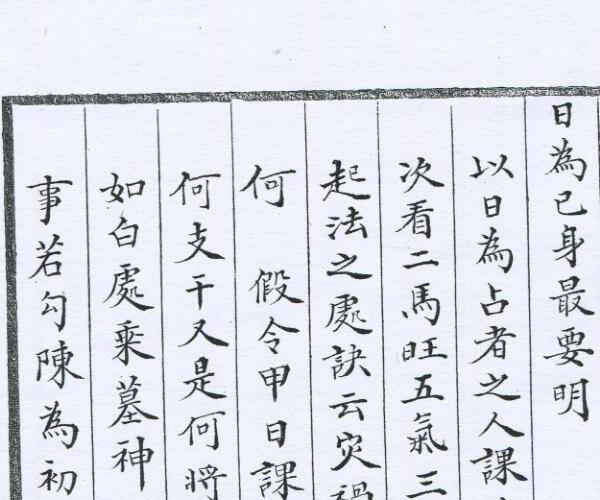 日為己身最要明
以日為占者之人課
次看二馬旺五氣三
起法之處訣云災禍
何 假令甲日課
何支干又是何將
如白處乗墓神
事若勾陳為初